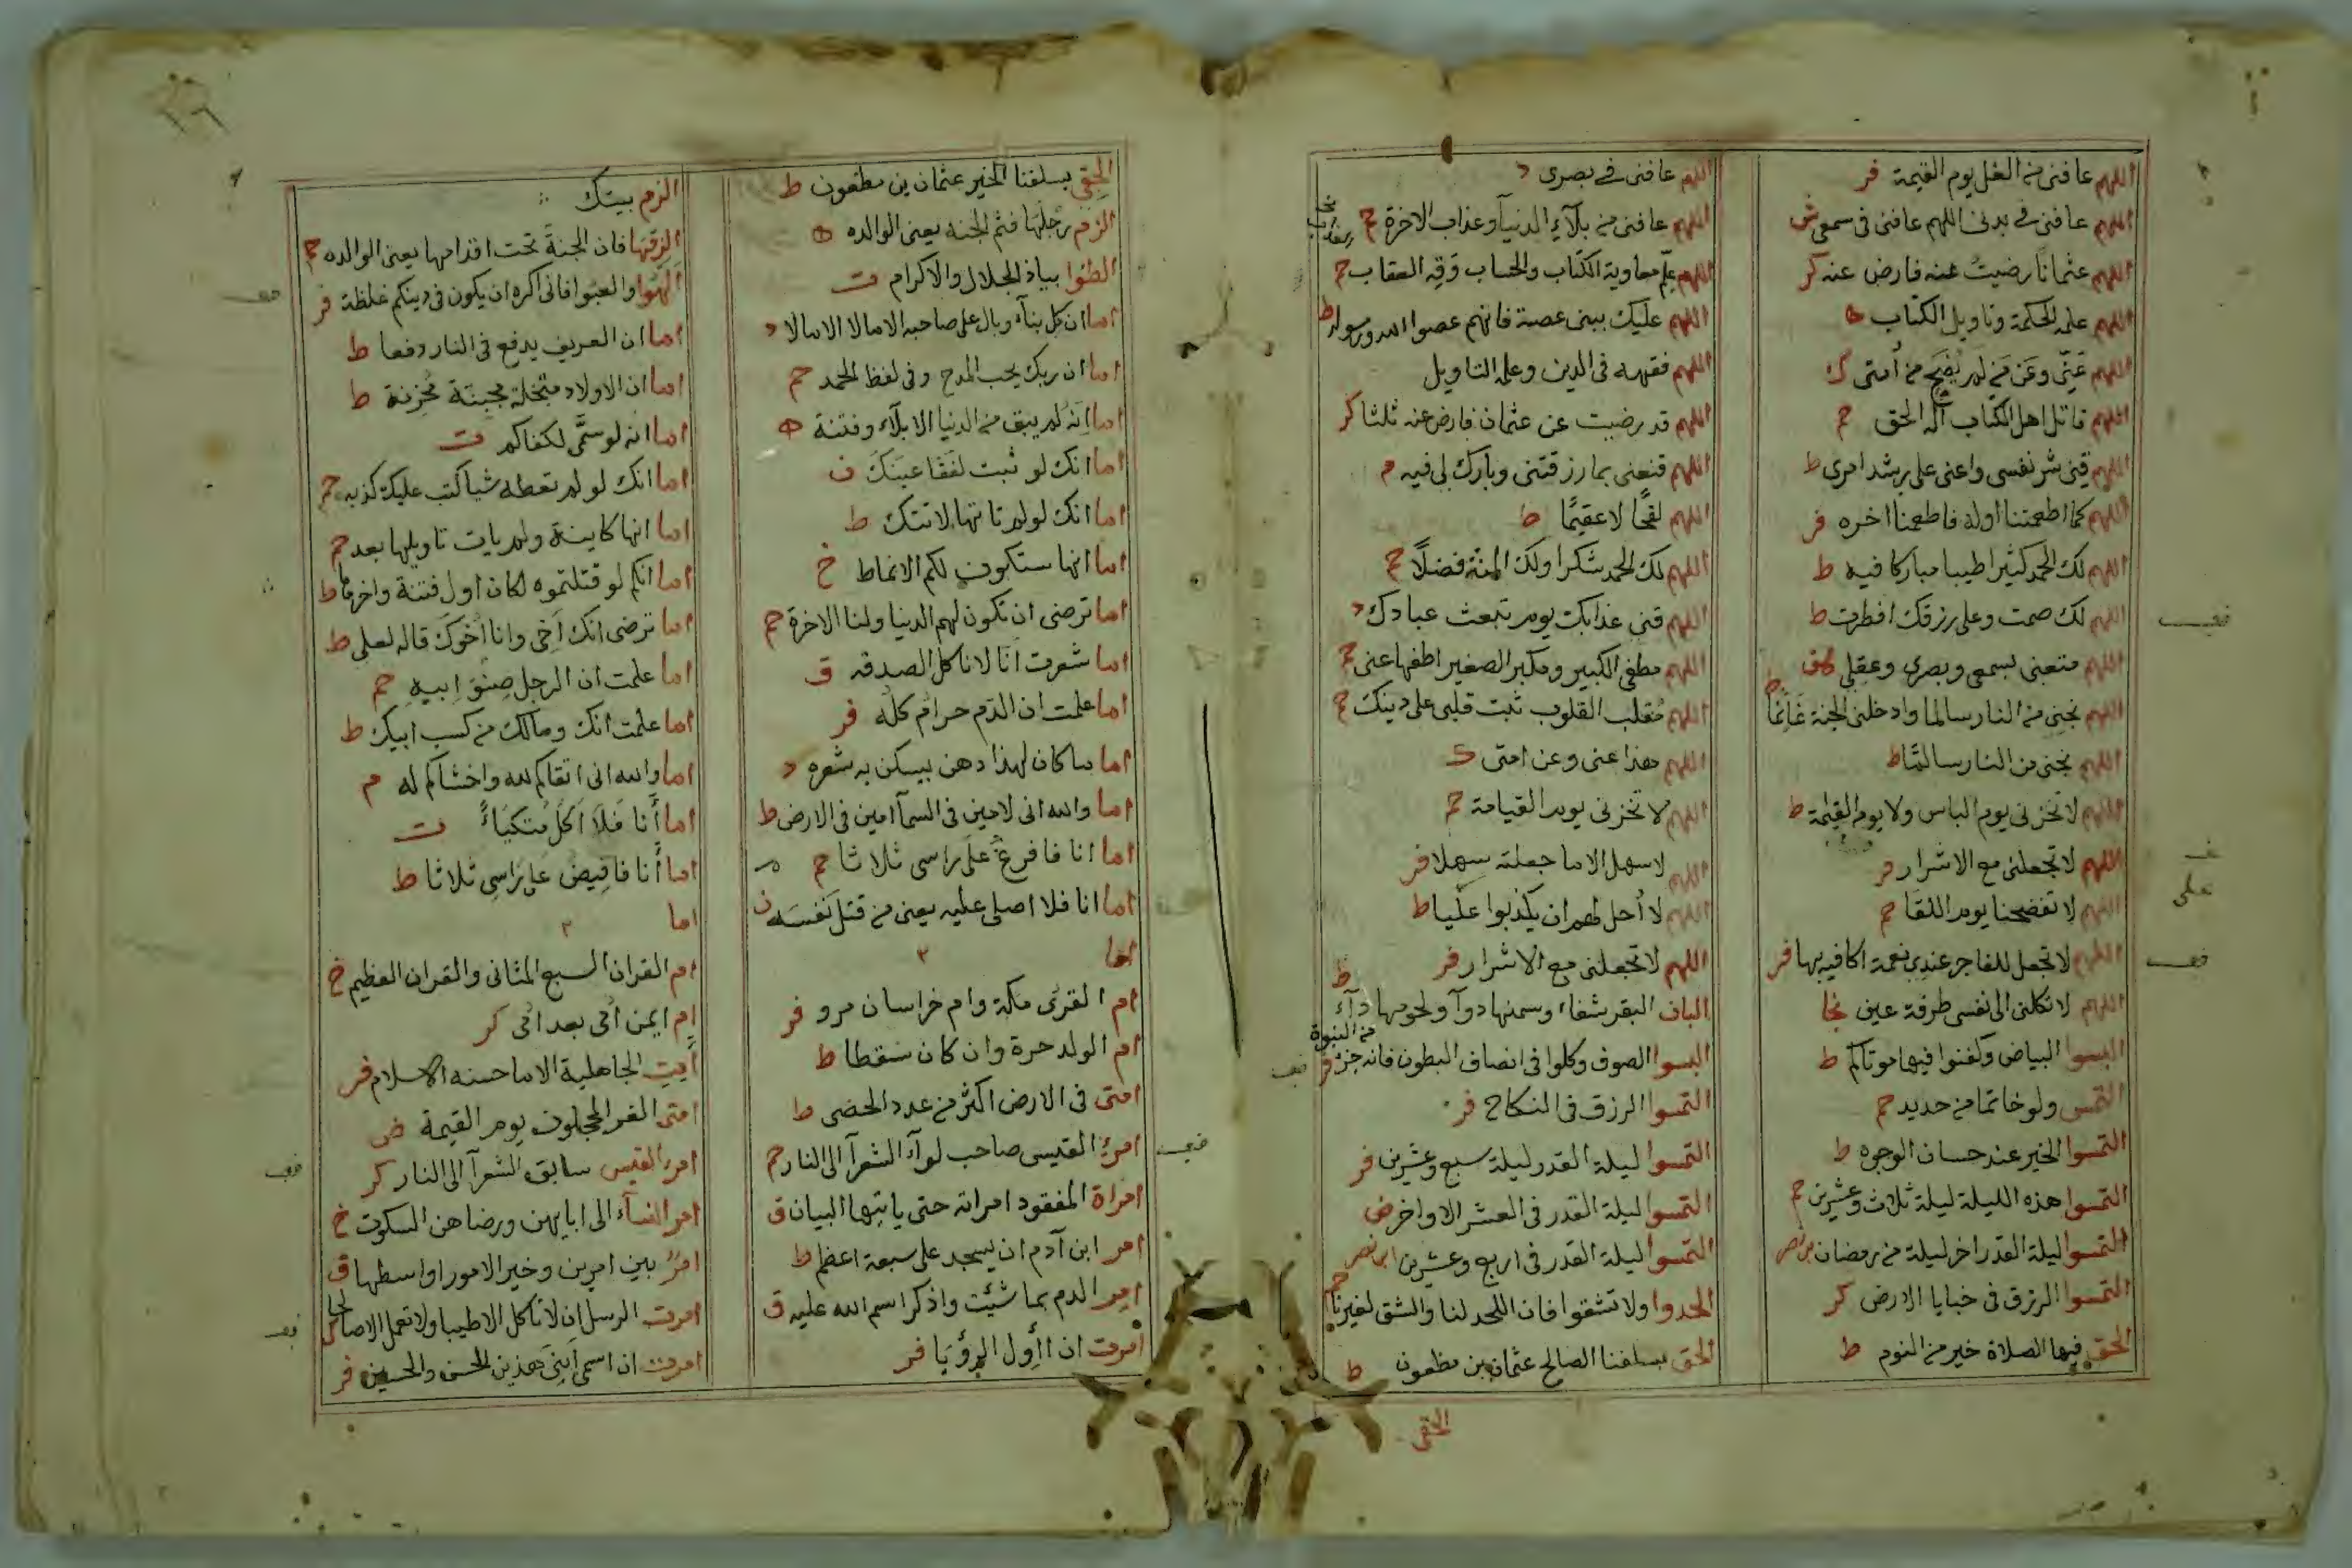 اللهم عافنى من الغل يوم القيمة فر
اللهم عافنى فى بدنى اللهم عافنى فى سمعى ش
اللهم عثمانا رضيت عنه فارض عنه كر
اللهم علمه الحكمة وتاويل الكتاب ه
اللهم عنى وعن من لم يضح من امتى ك
اللهم قاتل اهل الكتاب اله الحق حم
اللهم قنى شر نفسى واعنى على رشد امرى ط
اللهم كما اطعمتنا اوله فاطعمنا اخره فر
اللهم لك الحمد كثيرا طيبا مباركا فيه ط
اللهم لك صمت وعلى رزقك افطرت ط
اللهم متعنى بسمعى وبصرى وعقلى هق
اللهم نجنى من النار سالما وادخلنى الجنة غانما
اللهم نجنى من النار سالما ط
اللهم لا تخزنى يوم الباس ولا يوم القيمة ط
اللهم لا تجعلنى مع الاشرار فر
اللهم لا تفضحنا يوم اللقا حم
اللهم لا تجعل للفاجر عندى نعمة اكافيه بها فر
اللهم لا تكلنى الى نفسى طرفة عين نجا
البسوا البياض وكفنوا فيها موتاكم ط
التمس ولو خاتما من حديد حم
التمسوا الخير عند حسان الوجوه ط
التمسوا هذه الليلة ليلة ثلاث وعشرين حم
التمسوا ليلة القدر اخر ليلة من رمضان ابن نصر
التمسوا الرزق فى خبايا الارض كر
الحق فيها الصلاة خير من النوم ط
اللهم عافنى فى بصرى د
اللهم عافنى من بلاء الدنيا وعذاب الاخرة حم
اللهم علم معاوية الكتاب والحساب وقه العقاب حم
اللهم عليك ببنى عصية فانهم عصوا الله ورسوله ط
اللهم فقهه فى الدين وعلمه التاويل
اللهم قد رضيت عن عثمان فارض عنه ثلثا كر
اللهم قنعنى بما رزقتنى وبارك لى فيه م
اللهم لقحا لا عقيما ط
اللهم لك الحمد شكرا ولك المنة فضلا حم
اللهم قنى عذابك يوم تبعث عبادك د
اللهم مطفى الكبير ومكبر الصغير اطفها عنى حم
اللهم مقلب القلوب ثبت قلبى على دينك حم
اللهم هذا عنى وعن امتى ك
اللهم لا تخزنى يوم القيامة حم
اللهم لا سهل الا ما جعلته سهلا فر
اللهم لا احل لهم ان يكذبوا عليا ط
اللهم لا تجعلنى مع الاشرار فر
البان البقر شفاء وسمنها دوآ ولحومها دآء ط
البسوا الصوف وكلوا فى انصاف البطون فانه جزء من النبوة فر
التمسوا الرزق فى النكاح فر
التمسوا ليلة القدر ليلة سبع وعشرين فر
التمسوا ليلة القدر فى العشر الاواخر ض
التمسوا ليلة القدر فى اربع وعشرين ابن نصر
الحدوا ولا تشقوا فان اللحد لنا والشق لغيرنا حم
الحق بسلفنا الصالح عثمان بن مظعون ط
الحقى
الحقى بسلفنا الخير عثمان بن مظعون ط
الزم رجلها فثم الجنه يعنى الوالده ه
الظوا بياذ الجلال والاكرام ت
اما ان كل بنآء وبال على صاحبه الا مالا الا مالا د
اما ان ربك يحب المدح وفى لفظ الحمد حم
اما انه لم يبق من الدنيا الا بلآء وفتنة ه
اما انك لو ثبت لفقا عينك ن
اما انك لو لم تاتها لاتتك ط
اما انها ستكون لكم الانماط خ
اما ترضى ان تكون لهم الدنيا ولنا الاخرة حم
اما شعرت انا لا ناكل الصدقه ق
اما علمت ان الدم حرام كله فر
اما ما كان لهذا دهن يسكن به شعره د
اما والله انى لامين فى السمآ امين فى الارض ط
اما انا فافرغ على راسى ثلاثا حم
اما انا فلا اصلى عليه يعنى من قتل نفسه ن
اما ٢
ام القرى مكة وام خراسان مرو فر
ام الولد حرة وان كان سقطا ط
امتى فى الارض اكثر من عدد الحصى ط
امرؤ القيس صاحب لوآء الشعرآ الى النار حم
امراة المفقود امراته حتى ياتيها البيان ق
امر ابن آدم ان يسجد على سبعة اعظم ط
امر الدم بما شئت واذكر اسم الله عليه ق
امرت ان اأول الرؤيا فر
الزم بيتك
الزقها فان الجنة تحت اقدامها يعنى الوالده حم
الهوا والعبوا فانى اكره ان يكون فى دينكم غلظة فر
اما ان العريف يدفع فى النار دفعا ط
اما ان الاولاد مبخلة مجبنة محزنة ط
اما انه لو سمى لكفاكم ت
اما انك لو لم تعطه شيا كتب عليك كذبه حم
اما انها كاينة ولم يات تاويلها بعد حم
اما انكم لو قتلتموه لكان اول فتنة واخرها ط
اما ترضى انك اخى وانا اخوك قاله لعلى ط
اما علمت ان الرجل صنو ابيه حم
اما علمت انك ومالك من كسب ابيك ط
اما والله انى اتقاكم لله واخشاكم له م
اما أنا فلا اكل متكياء ت
اما أنا فافيض على راسى ثلاثا ط
اما ٢
ام القران السبع المثانى والقران العظيم خ
ام ايمن امى بعد امى كر
الجاهلية الا ما حسنه الاسلام فر
امتى الغر المحجلون يوم القيمة ض
امرء القيس سابق الشعرآ الى النار كر
امر النسآء الى ابايهن ورضاهن السكوت خ
امر بين امرين وخير الامور اواسطها ق
امرت الرسل ان لا تاكل الا طيبا ولا تعمل الا صالحا
امرت ان اسمى ابنى هذين الحسن والحسين فر